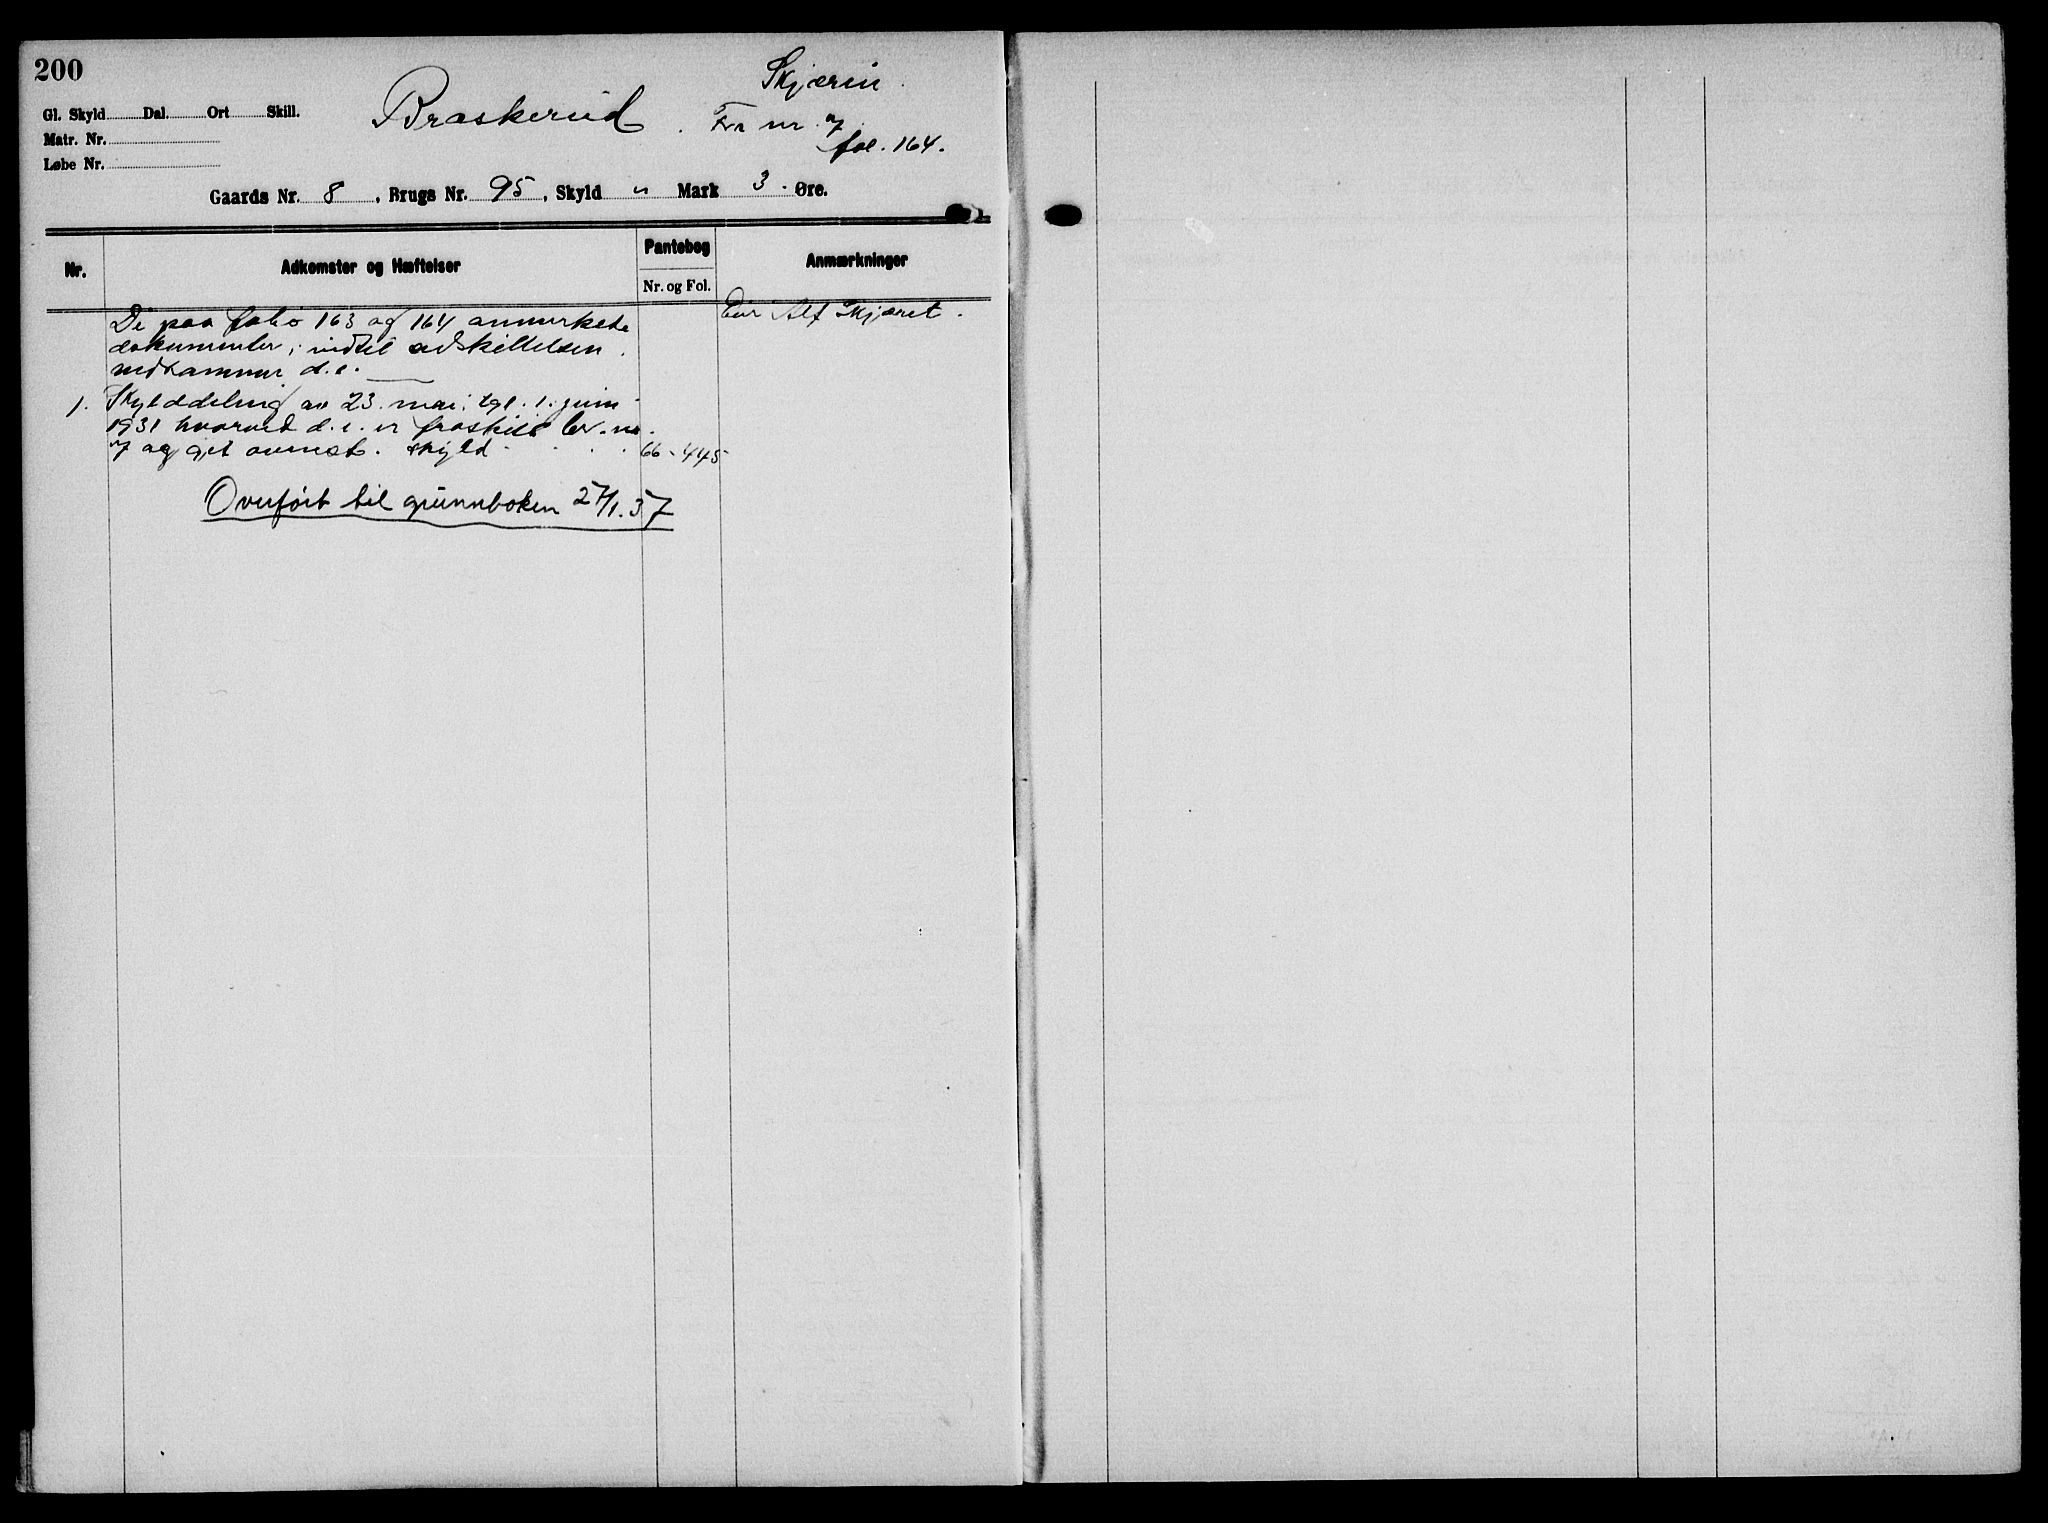 200
Skjærin
Gl. Skyld Dal. Ort Skill.
Braskerud. Fra nr. 7
Matr. Nr.
fol. 164.
Løbe Nr.
Gaards Nr. 8, Brugs Nr. 95, Skyld " Mark 3 Øre.
Nr. Adkomster og Hæftelser Pantebog Nr. og Fol. Anmærkninger
De paa folio 163 og 164 anmerkede Eier Alf Skjæret.
dokumenter, indtil adskillelsen
vedkommer d.e.
1. Skylddeling av 23. mai, tgl. 1. juni
1931 hvorved d.e. er fraskilt br. nr.
7 og git anmat. skyld 66-445
Overført til grunnboken 27/1.37